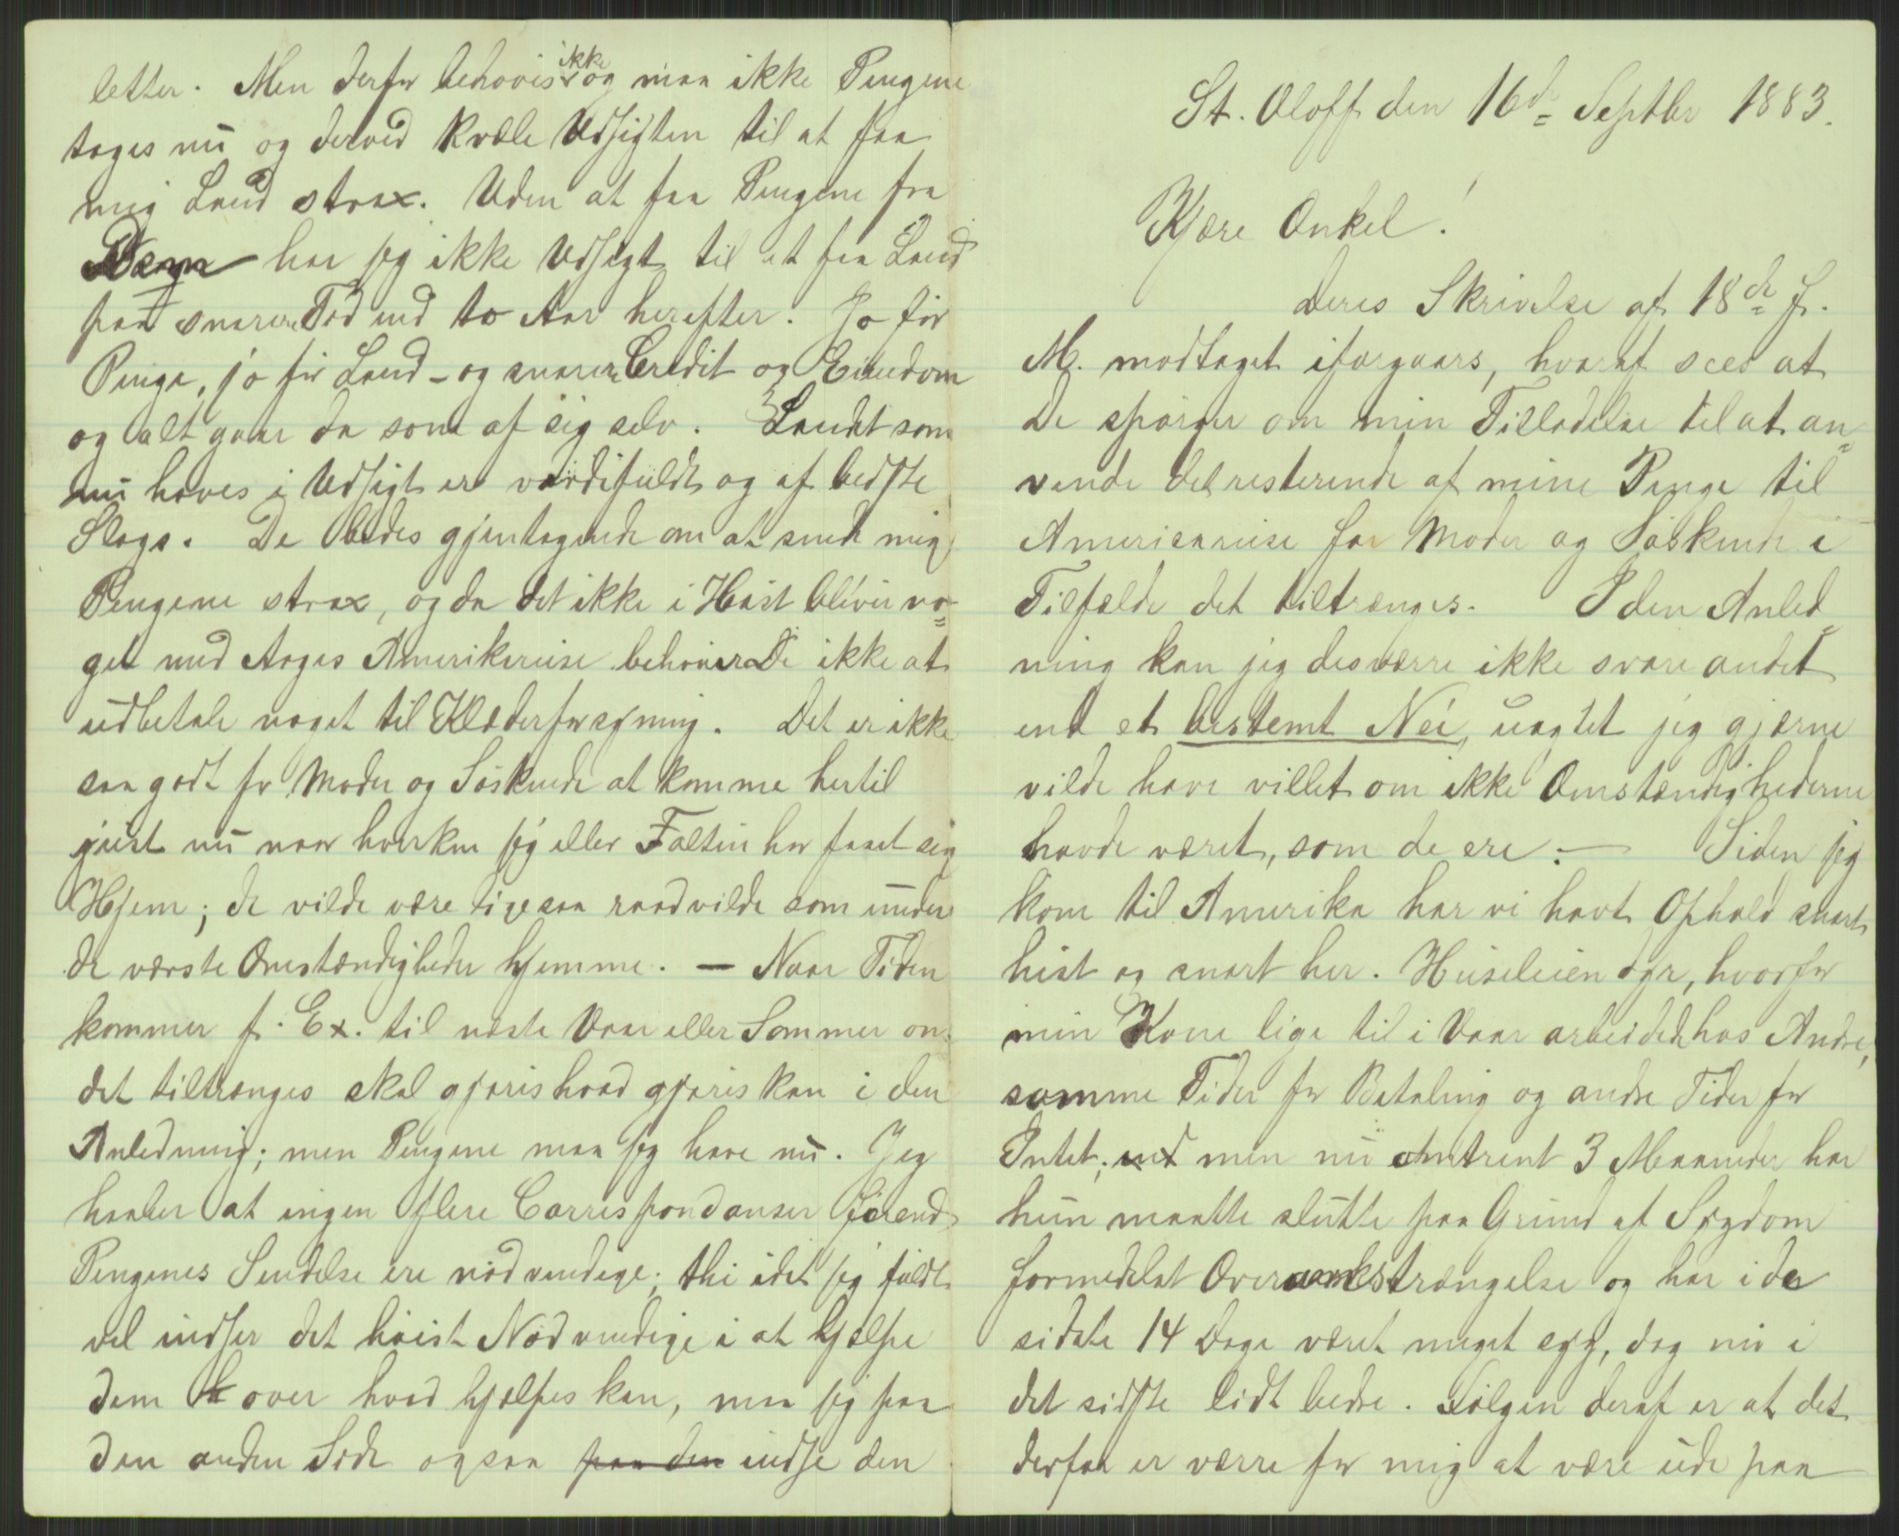 letter. Men derfor behøves ikke og maa ikke Pengene
tages nu og derved kvæle Udsigten til at faa
mig Land strax. Uden at faa Pengene fra
har jeg ikke Udsigt til at faa Land
paa snarere Tid end to Aar herefter. Jo før
Penge, jo før Land - og snarere Credit og Eiendom
og alt gaar da som af sig selv. Landet som
nu haves i Udsigt er værdifuldt og af bedste
Slags. De bedes gjentagende om at sende mig
Pengene strax, og da det ikke i Høst bliver no=
get med Aages Amerikareise behøver De ikke at
udbetale noget til Klæderforsyning. Det er ikke
saa godt for Moder og Søskende at komme hertil
just nu naar hverken jeg eller Faltin har faaet sig
Hjem; de vilde være ligesaa raadvilde som under
de værste Omstændigheder hjemme. — Naar Tiden
kommer f. Ex. til næste Vaar eller Sommer om
det tiltrænges skal gjøres hvad gjøres kan i den
Anledning; men Pengene maa jeg have nu. Jeg
haaber at ingen flere Correspondanser førend
Pengenes Sendelse ere nødvendige; thi idet jeg fuldt
vel indser det høist Nødvendige i at hjælpe
dem over hvad hjælpes kan, maa jeg paa
den anden Side ogsaa paa den indse den
St. Oloff den 16de Septbr 1883.
Kjære Onkel!
Deres Skrivelse af 18de f.
M. modtaget iforgaars, hvoraf sees at
De spørger om min Tilladelse til at an=
vende det resterende af mine Penge til
Americareise for Moder og Søskende i
Tilfælde det tiltrænges. I den Anled=
ning kan jeg desværre ikke svare andet
end et bestemt Nei, uagtet jeg gjærne
vilde have villet om ikke Omstændighederne
havde været, som de ere: — Siden jeg
kom til Amerika har vi havt Ophold snart
hist og snart her. Huseleien dyr, hvorfor
min Kone lige til i Vaar arbeidede hos Andre,
somme Tider for Betaling og andre Tider for
Intet; men nu omtrent 3 Maaneder har
hun maatte slutte paa Grund af Sygdom
formedelst Overanstrængelse og har i de
sidste 14 Dage været meget syg, dog nu i
det sidste lidt bedre. Følgen deraf er at det
derfor er værre for mig at være ude paa